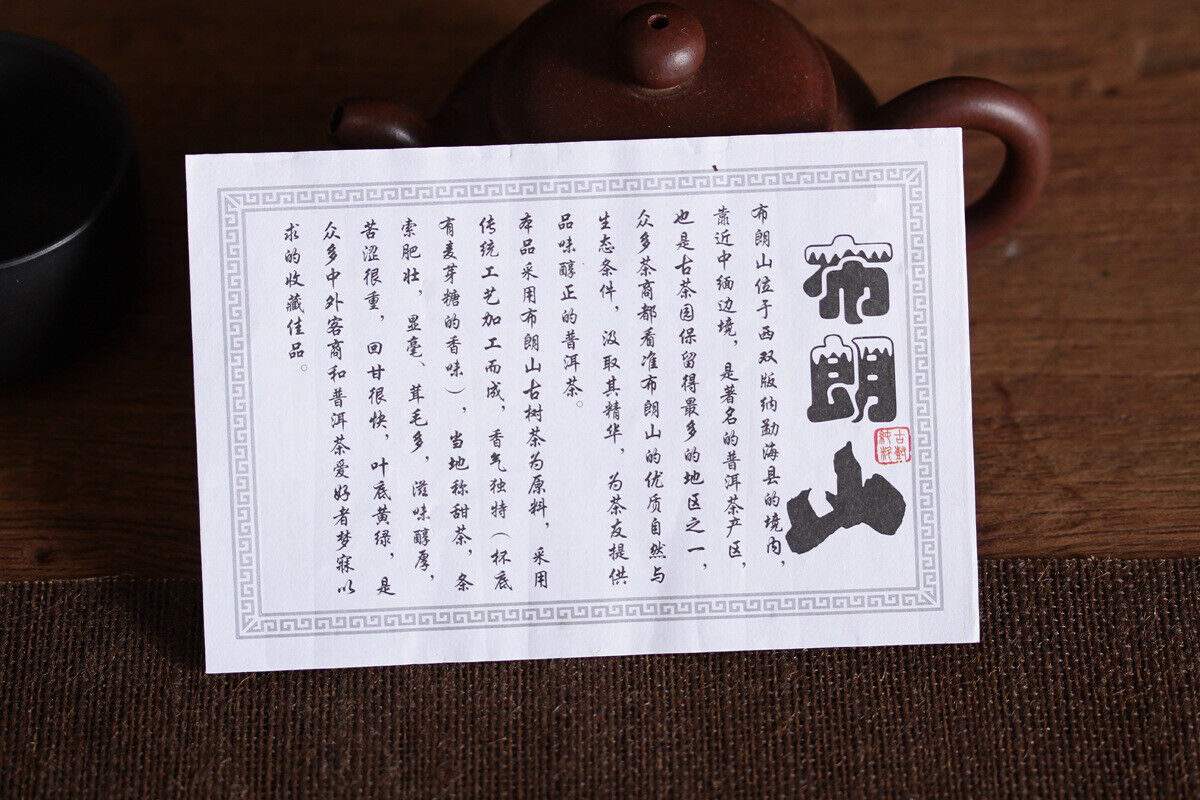 布朗山
布朗山位于西双版纳勐海县的境内，
靠近中缅边境，是著名的普洱茶产区，
也是古茶园保留得最多的地区之一，
众多茶商都看准布朗山的优质自然与
生态条件，汲取其精华，为茶友提供
品味醇正的普洱茶。
本品采用布朗山古树茶为原料，采用
传统工艺加工而成，香气独特（杯底
有麦芽糖的香味），当地称甜茶，条
索肥壮，显毫、茸毛多，滋味醇厚，
苦涩很重，回甘很快，叶底黄绿，是
众多中外客商和普洱茶爱好者梦寐以
求的收藏佳品。